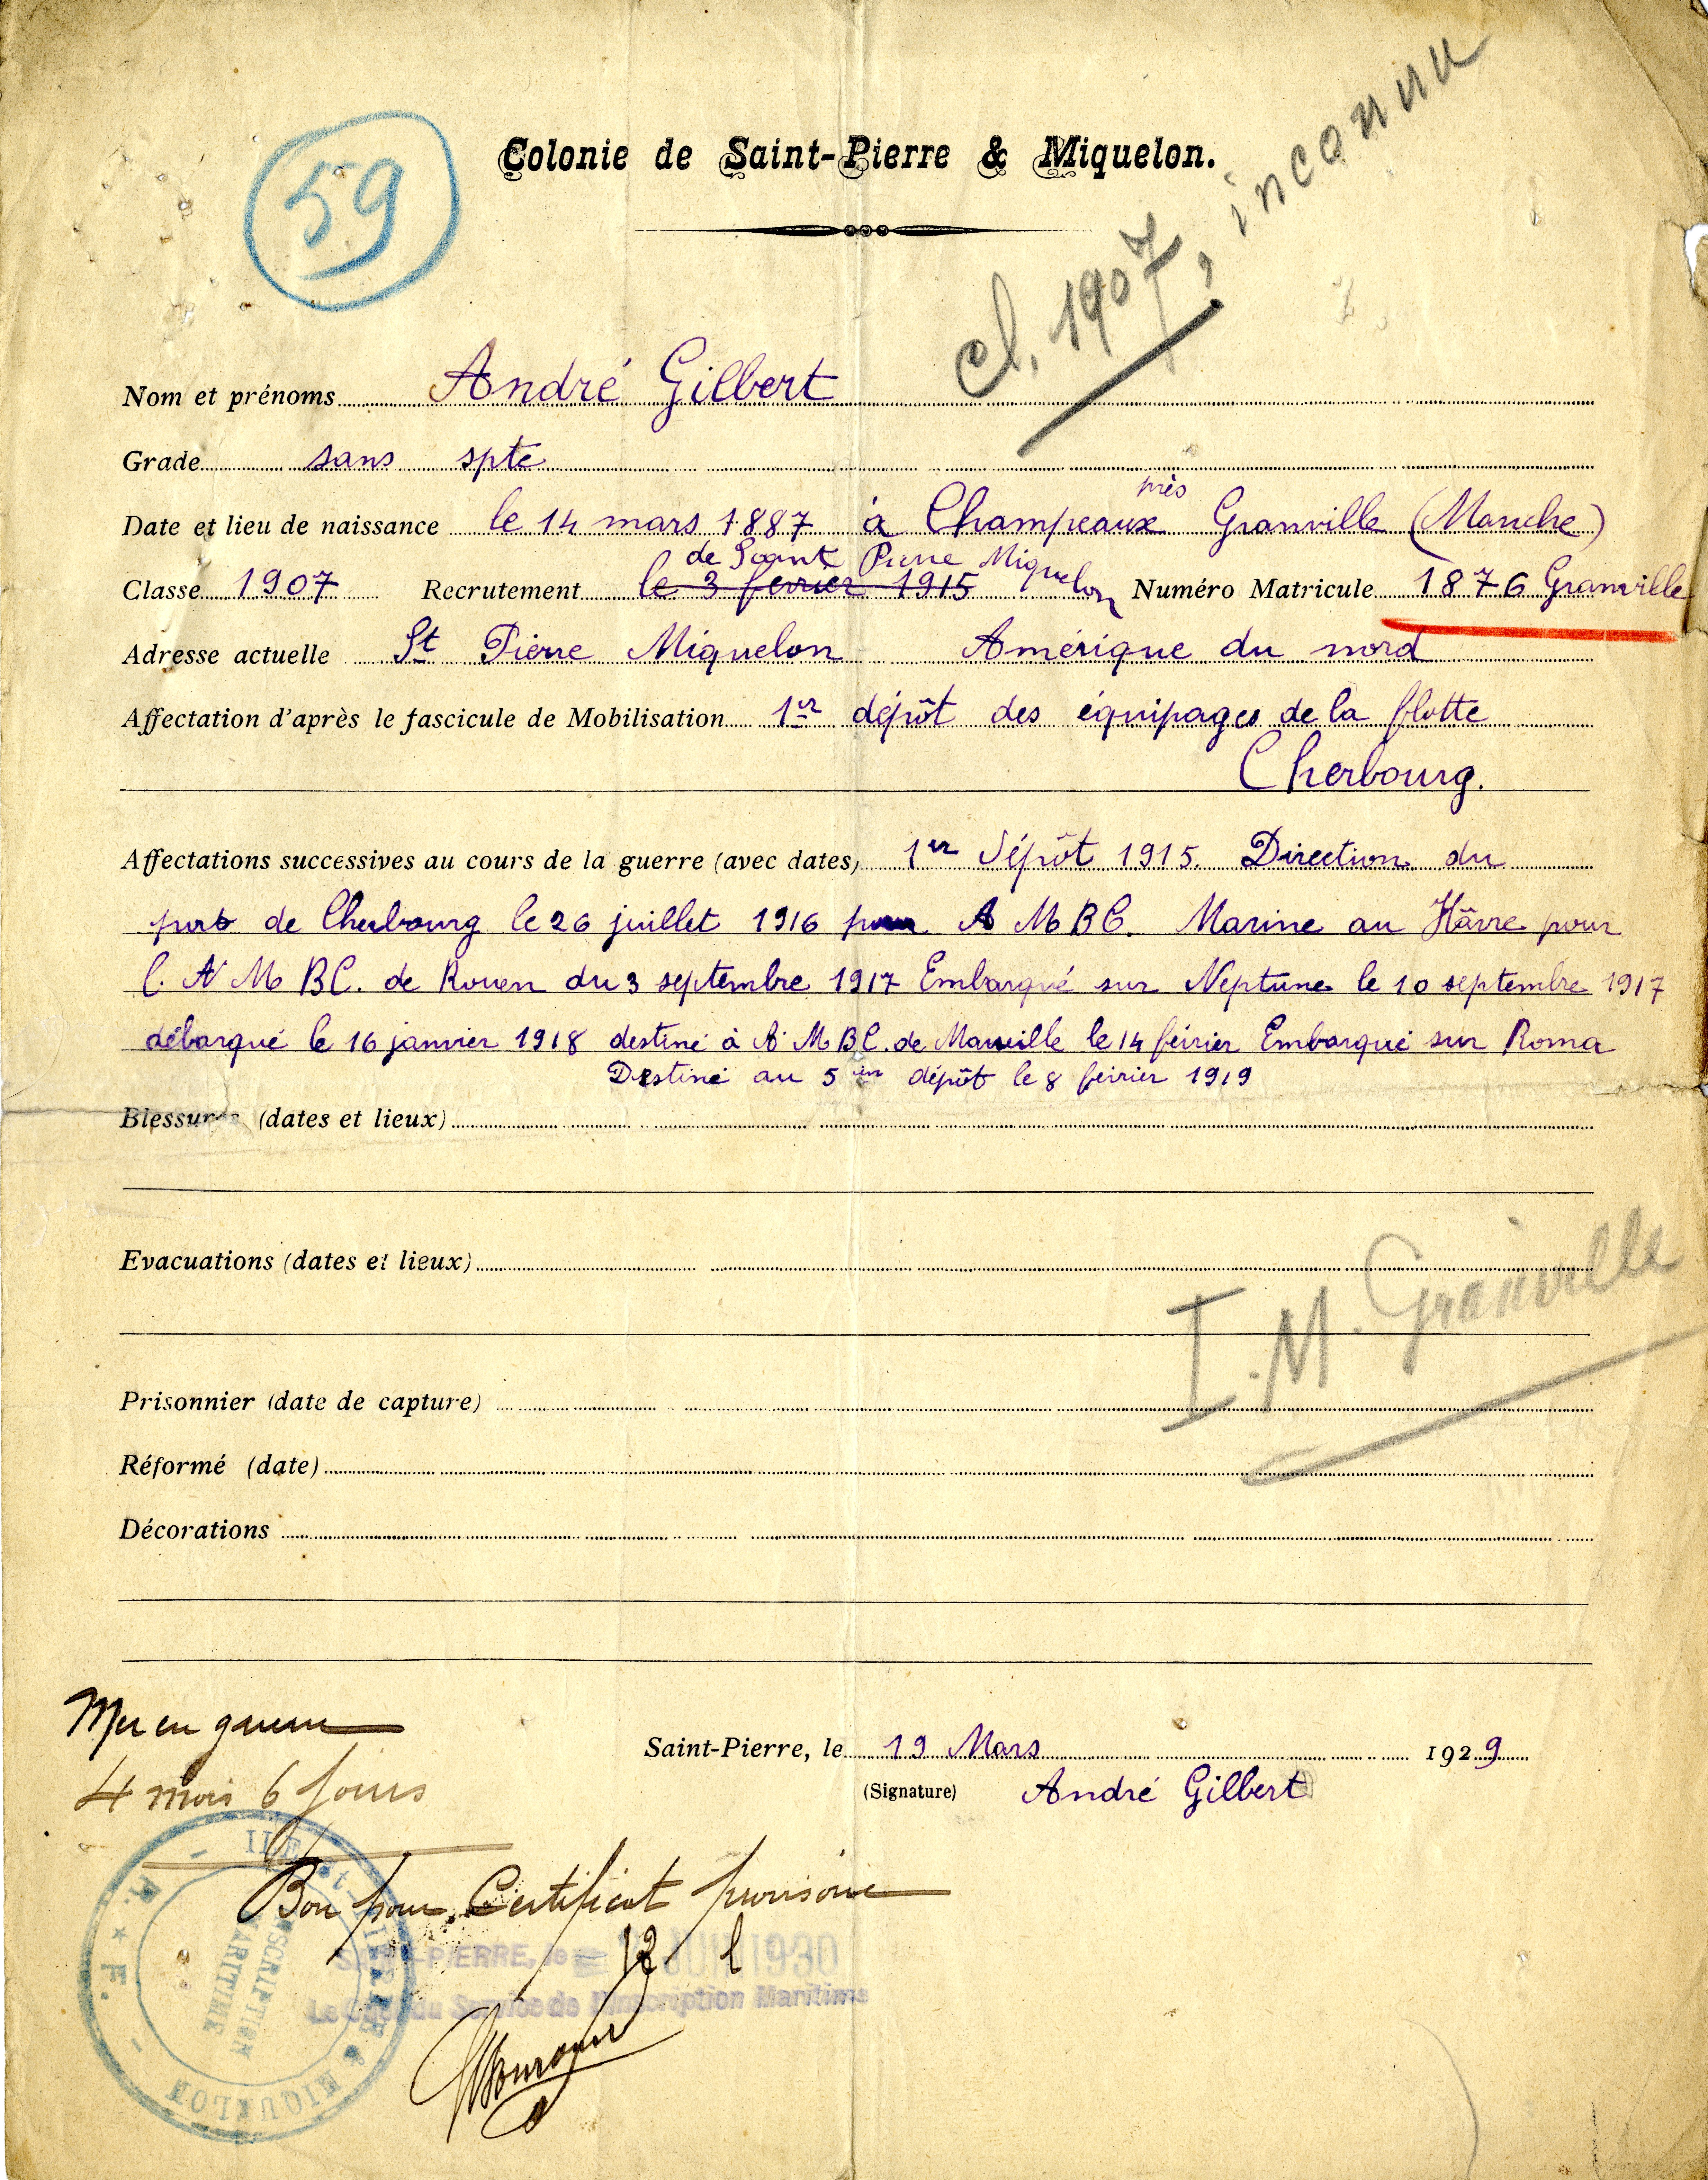 59
Colonie de Saint-Pierre & Miquelon.
cl. 1907, inconnu
Nom et prénoms André Gilbert
Grade sans spte
près
Date et lieu de naissance le 14 mars 1887 à Champeaux Granville (Manche)
de Saint Pierre Miquelon
Classe 1907 Recrutement le 3 fevrier 1915 Numéro Matricule 1876 Granville
Adresse actuelle St Pierre Miquelon Amérique du nord
Affectation d'après le fascicule de Mobilisation 1er dépôt des équipages de la flotte
Cherbourg.
Affectations successives au cours de la guerre (avec dates) 1er Dépôt 1915. Direction du
port de Cherbourg le 26 juillet 1916 pour A M B C. Marine au Hâvre pour
l. A M B C. de Rouen du 3 septembre 1917 Embarqué sur Neptune le 10 septembre 1917
débarqué le 16 janvier 1918 destiné à A M B C. de Marseille le 14 février Embarqué sur Roma
Destiné au 5 em dépôt le 8 février 1919
Blessures (dates et lieux)
Evacuations (dates et lieux)
I. M. Granville
Prisonnier (date de capture)
Réformé (date)
Décorations
Mer en guerre
4 mois 6 jours
Saint-Pierre, le 19 Mars 1929
(Signature) André Gilbert
Bon pour Certificat provisoire
SAINT-PIERRE, le 12 JUIN 1930
Le Chef du Service de l'Inscription Maritime
ILES St-PIERRE & MIQUELON
INSCRIPTION
MARITIME
R. * F.